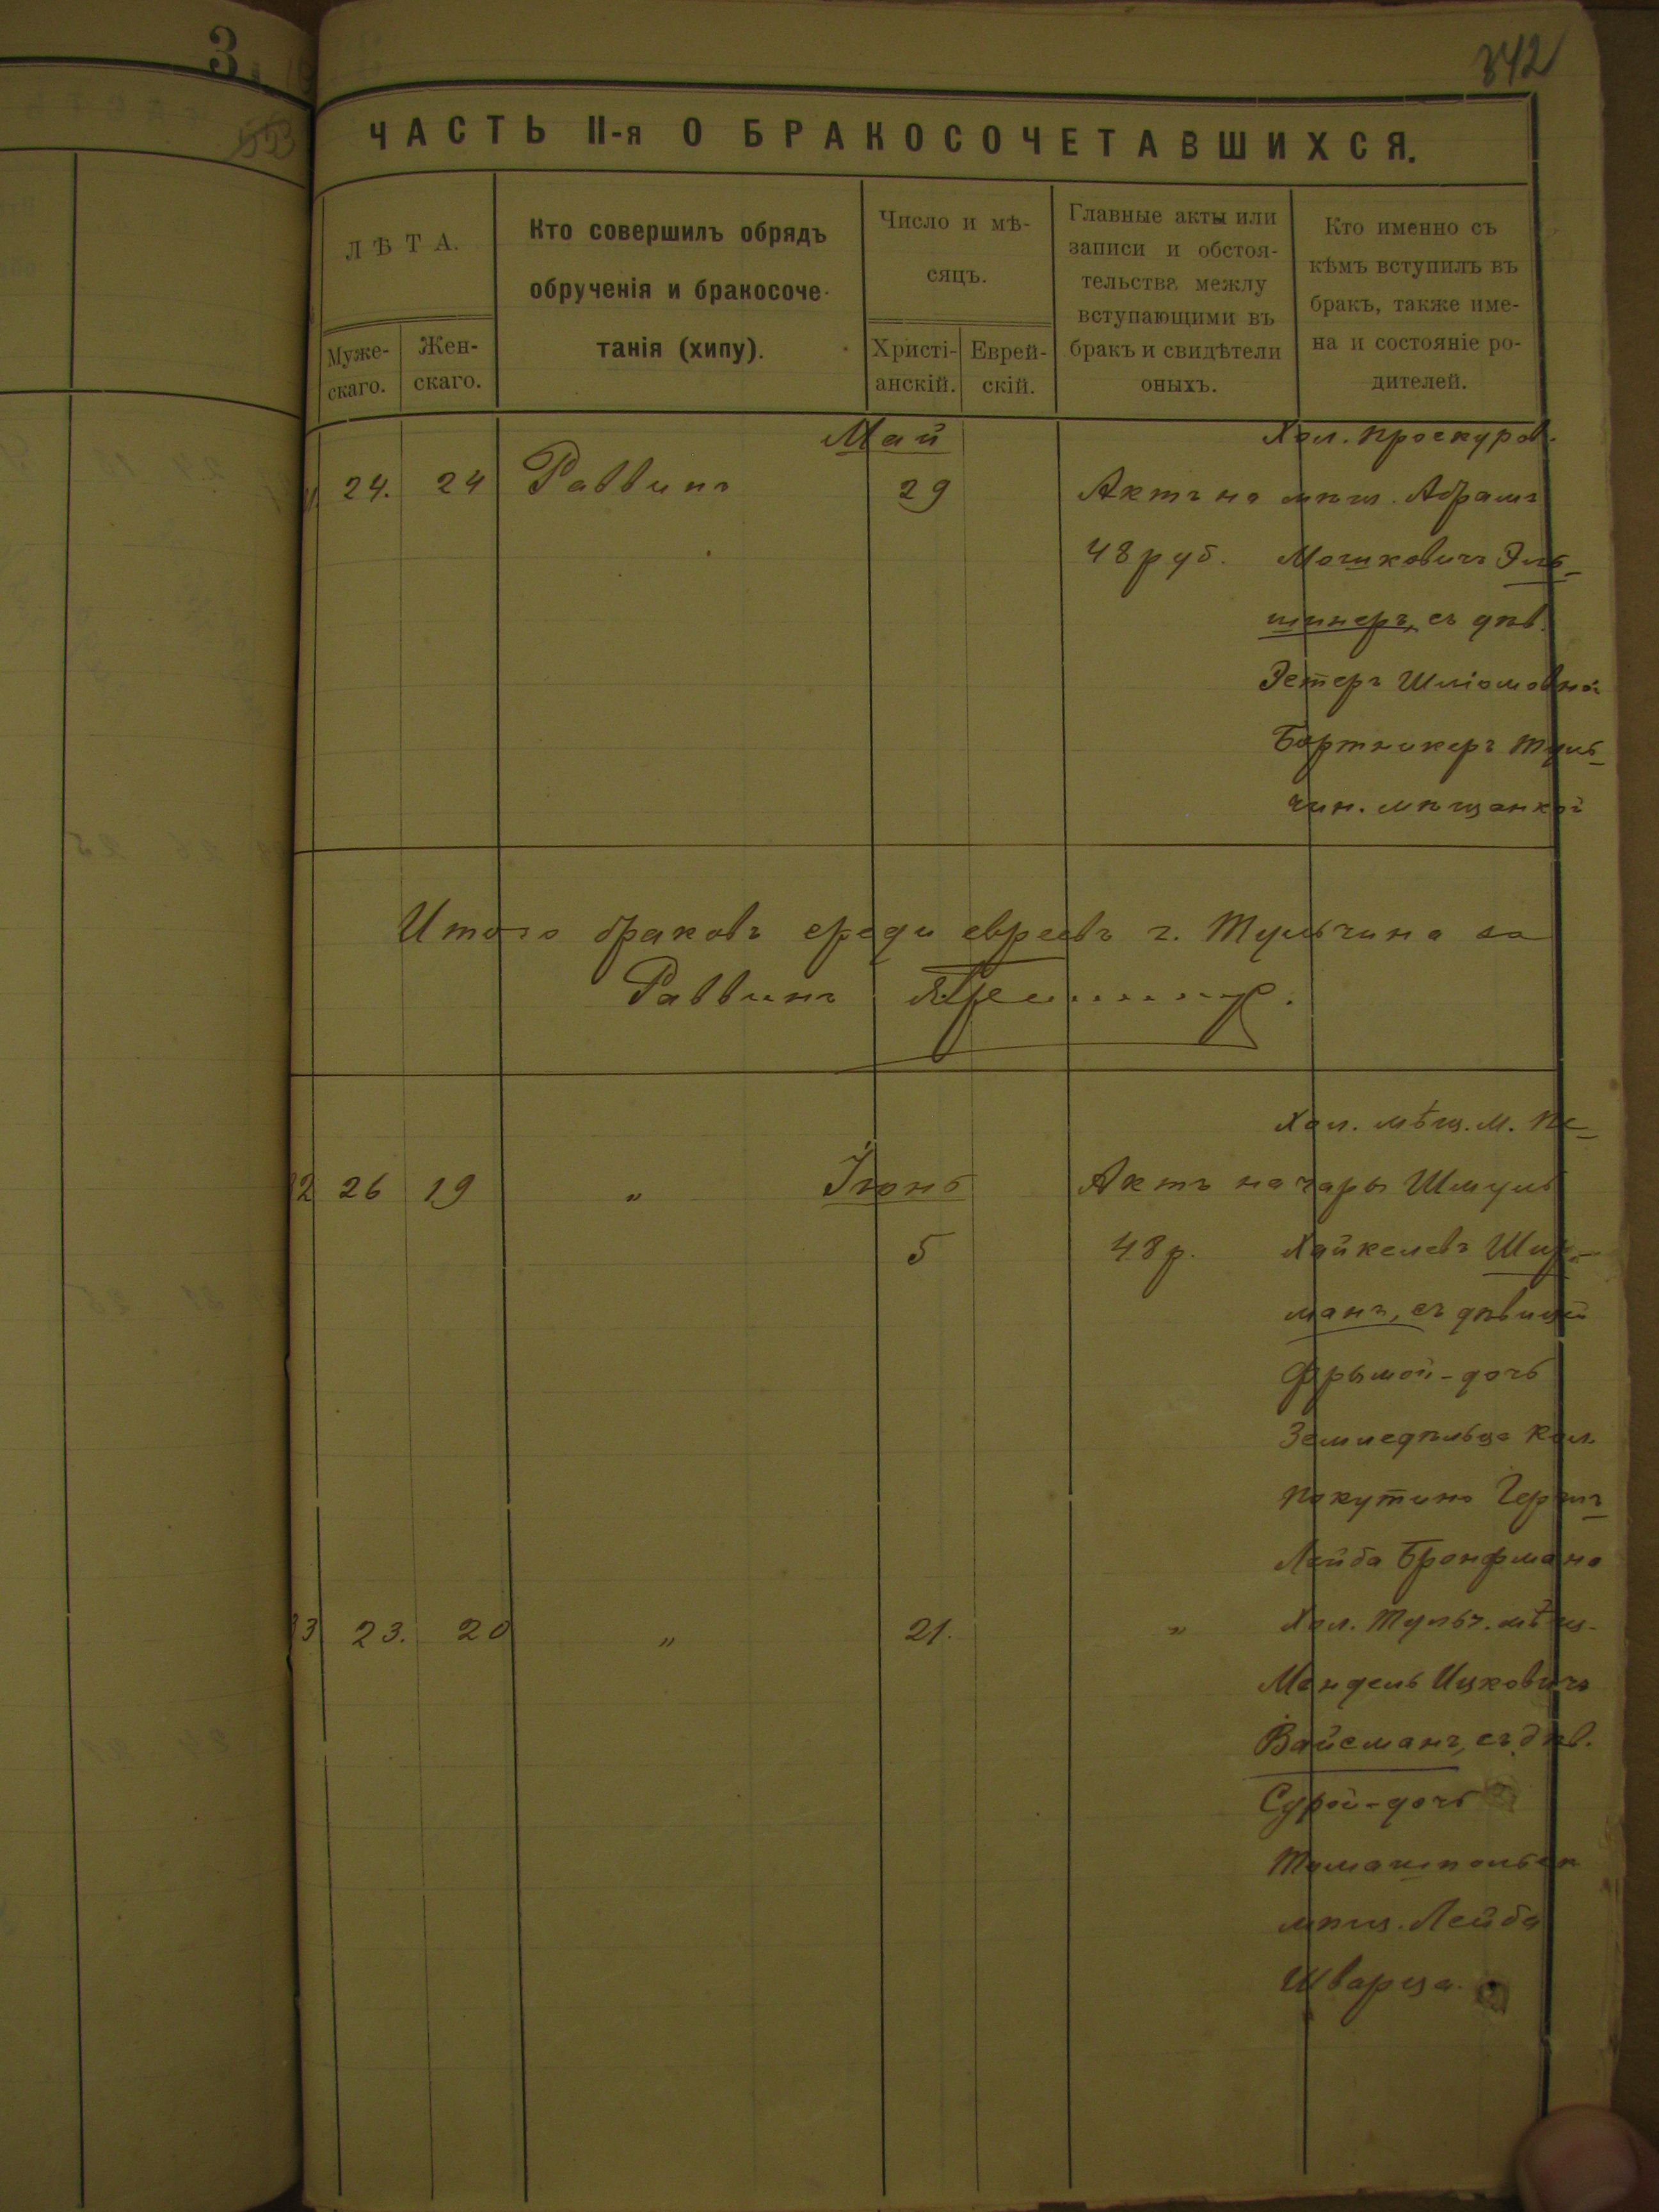 3
342
ЧАСТЬ II-я О БРАКОСОЧЕТАВШИХСЯ.
ЛѢТА.
Муже-
скаго.
Жен-
скаго.
Кто совершилъ обрядъ
обрученія и бракосоче-
танія (хипу).
Число и мѣ-
сяцъ.
Христі-
анскій.
Еврей-
скій.
Главные акты или
записи и обстоя-
тельства между
вступающими въ
бракъ и свидѣтели
оныхъ.
Кто именно съ
кѣмъ вступилъ въ
бракъ, также име-
на и состояніе ро-
дителей.
Май
24. 24 Раввинъ 29
Актъ на
48 руб.
Хол. проскуров.
мѣщ. Абрамъ
Мошковичъ Эль-
шинеръ, съ дѣв.
Эстеръ Шліомовной
Бортникеръ туль-
чин. мѣщанкой
Итого браковъ среди евреевъ г. Тульчина за
Раввинъ
Іюнь
26 19 „ 5
Актъ на
48 р.
Хол. мѣщ. м. Пе-
чары Шмуль
Хайкелевъ Шир-
манъ, съ дѣвицей
Фрымой - дочь
Земледѣльца кол.
Покутино Гершъ
Лейба Бронфмана
23. 20 „ 21. „
Хол. Тульч. мѣщ.
Мендель Ицковичъ
Вайсманъ, съ дѣв.
Сурой - дочь
Томашпольск
мѣщ. Лейба
Шварца.